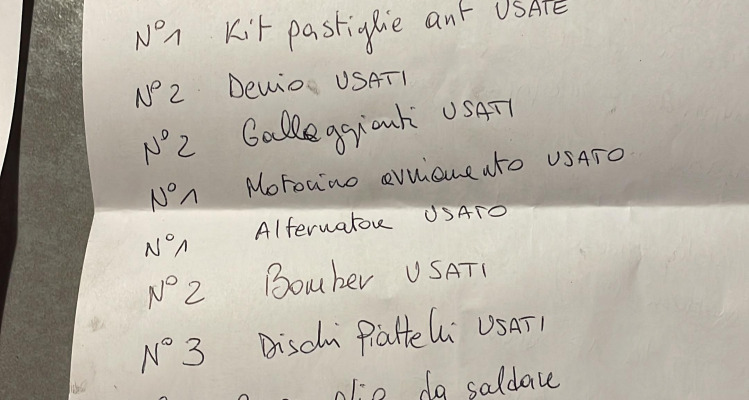 N°1 Kit pastiglie ant USATE
N°2 Denio USATI
N°2 Galleggianti USATI
N°1 Motorino avviamento USATO
N°1 Alternatore USATO
N°2 Bomber USATI
N°3 Dischi Piattelli USATI
olio da saldare